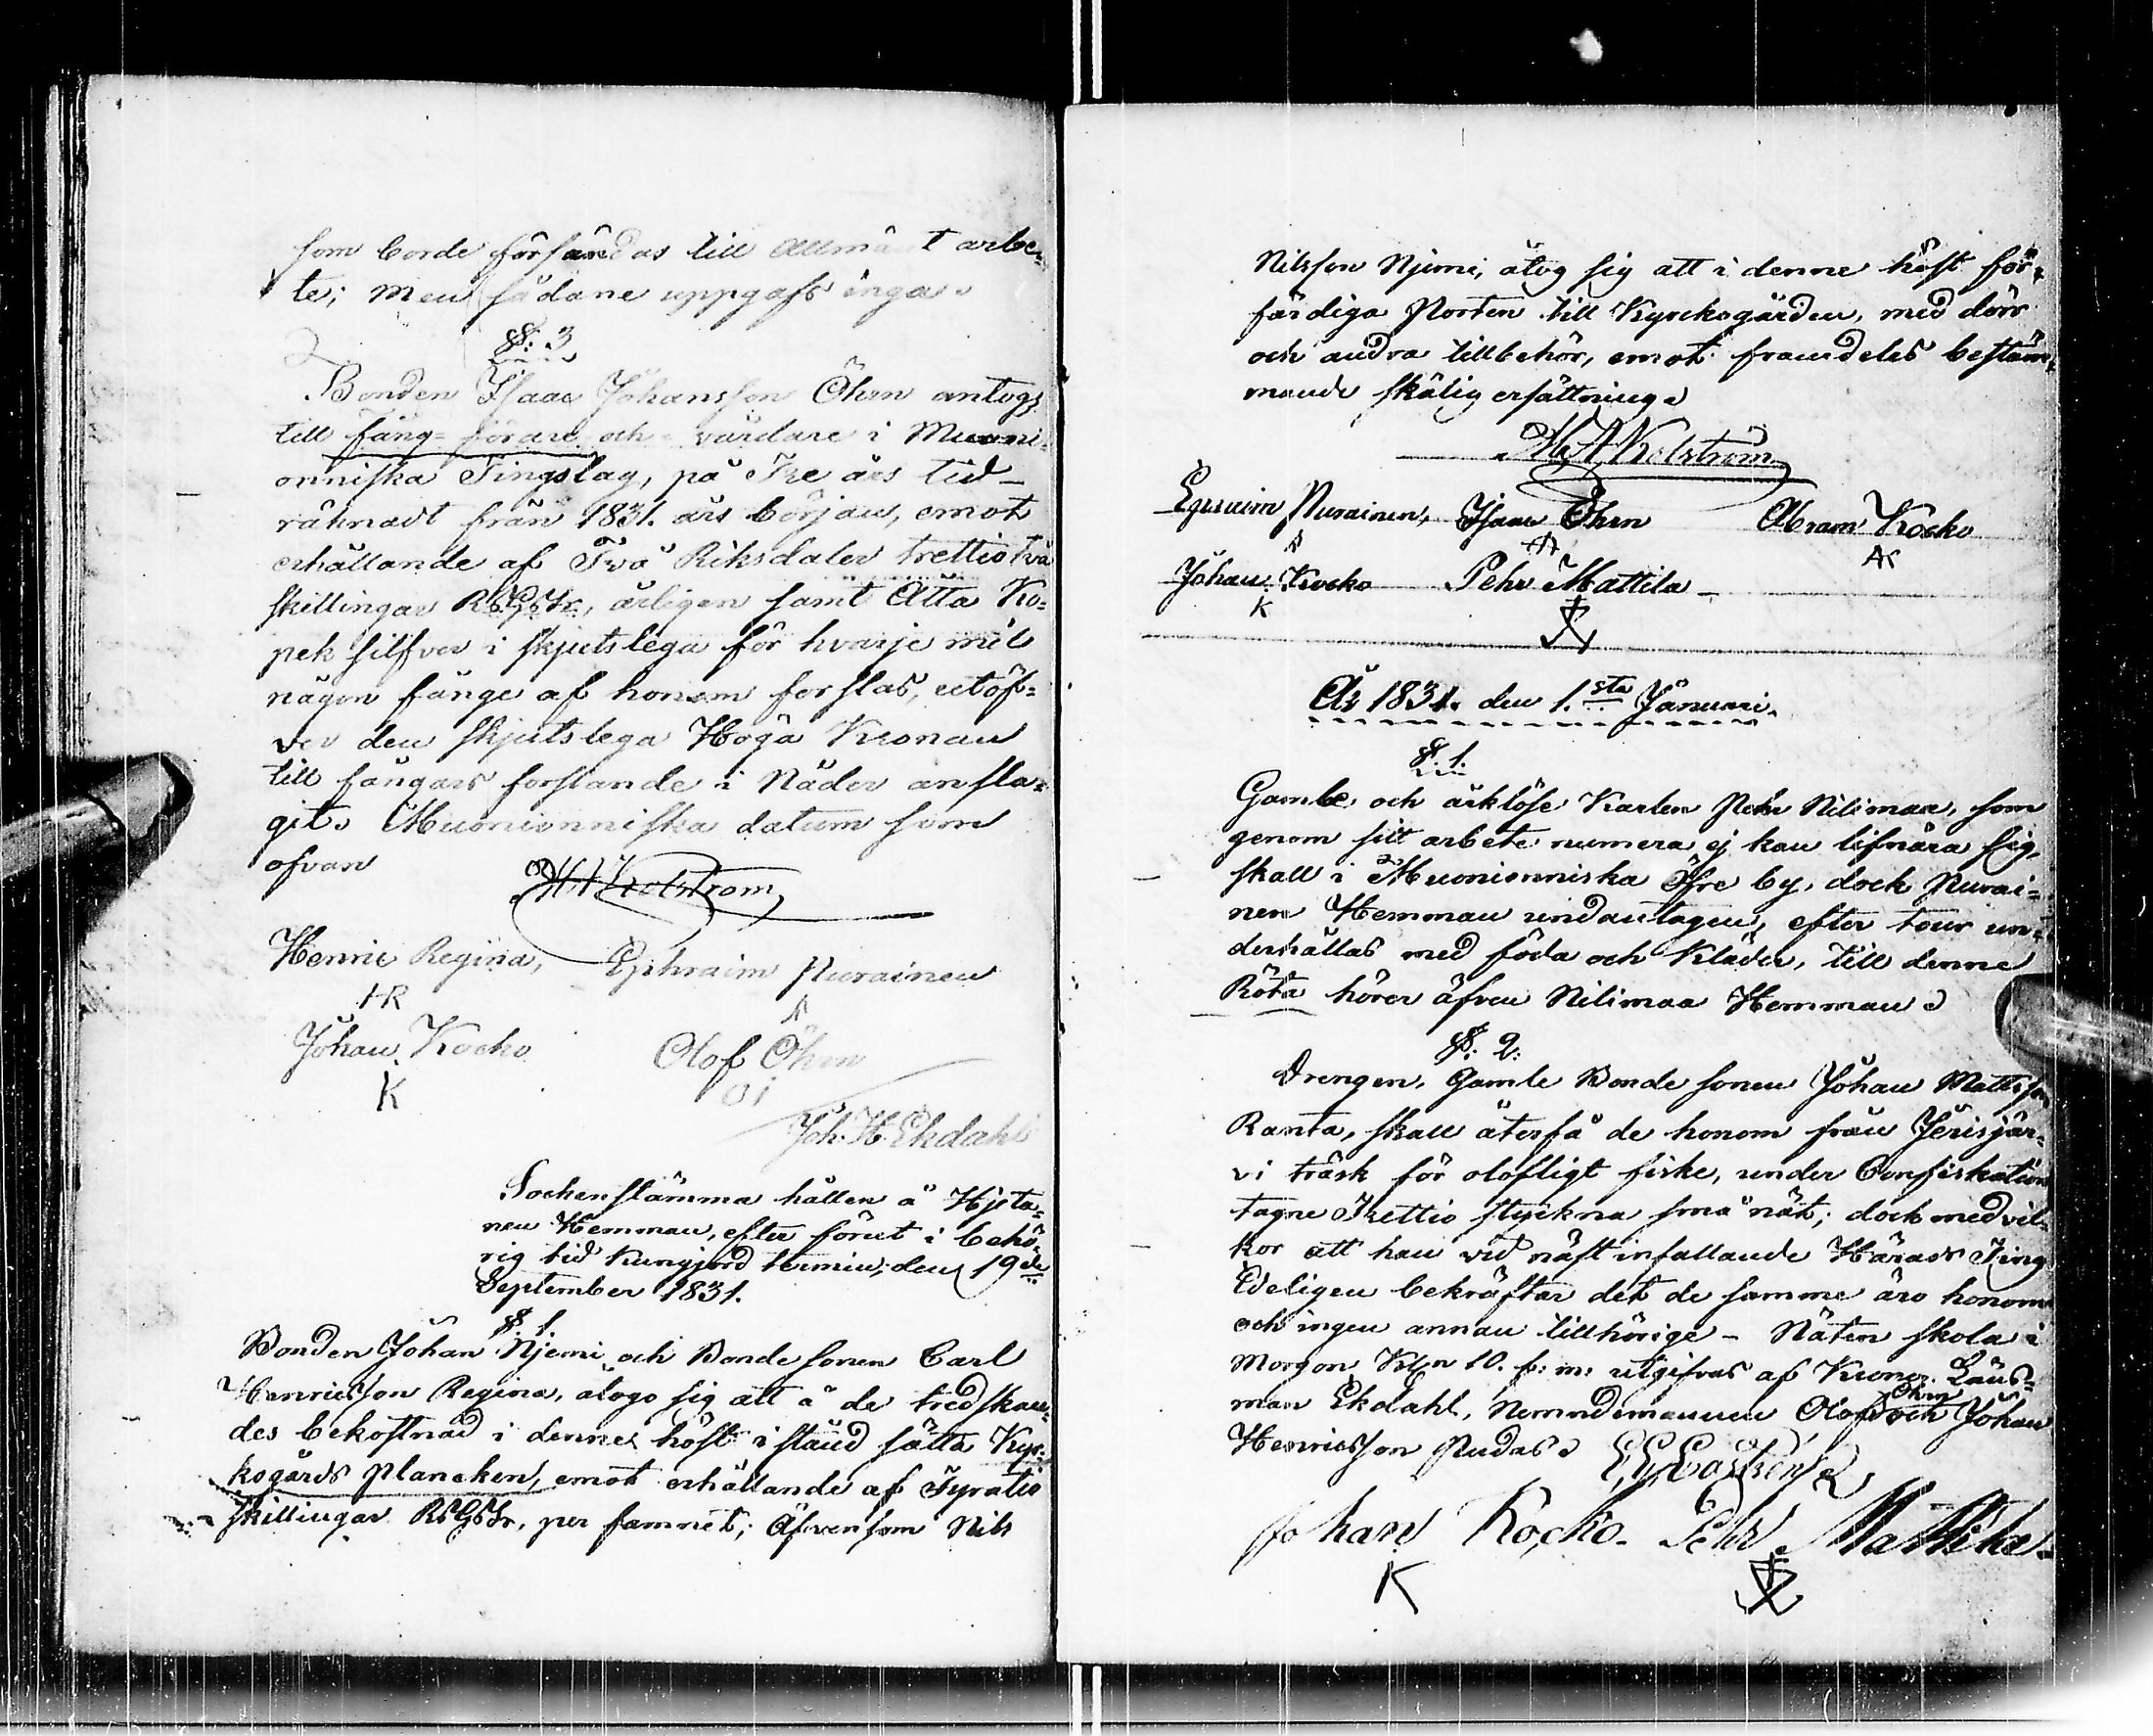 som borde försändas till Allmänt arbe=
te; Men sådane uppgafs inga.
§: 3
Bonden Isaac Johansson Öhrn antogs
till Fång-förare och vårdare i Muoni-
onniska Tingslag, på Tre års tid
räknadt från 1831. års början, emot
erhållande af Två Riksdaler trettiotvå
skillingar RbGsSr., årligen samt Åtta Ko=
pek silfver i skjutslega för hvarje mil
någon fånge af honom forslas, utöf=
ver den skjutslega Höga Kronan
till fångars forslande i Nåder ansla=
git. Muonionniska datum som
ofvan
Henric Regina, Ephraim Purainen
HR
Johan Kocko Olof Öhrn
K OÖ
Joh. H. Ekdahl
Sockenstämma hållen å Hjeta=
nen Hemman, efter förut i behö=
rig tid kungjord termin, den 19de
September 1831.
§. 1.
Bonden Johan Njemi och Bonde sonen Carl
Henricsson Regina, atogo sig att å de tredskan=
des bekostnad i denne höst i stånd sätta Kyr=
kogårds plancken, emot erhållande af Fyratio
skillingar RbGsSr, per famnet; Äfvensom Nils
Nilsson Njemi, åtog sig att i denne höst för=
färdiga Porten till Kyrckogården, med dörr
och andra tillbehör, emot framdeles bestäm=
mande skälig ersättning.
Ephraim Purainen, Isaac Öhrn Abram Kocko
Johan Kocko Pehr Mattila
K
År 1831. den 1.sta Januari.
§. 1.
Gamle och arklöse Karlen Pehr Nilimaa, som
genom sitt arbete numera ej kan lifnära sig,
skall i Muonionniska Öfre by, dock Purai=
nen Hemman undantagen, efter tour un=
derhållas med föda och Kläder, till denne
Rota hörer äfven Nilimaa Hemman.
§: 2:
Drengen, Gamle Bonde sonen Johan Mattsson
Ranta, skall återfå de honom från Jerisjär=
vi träsk för olofligt fiske, under Confiskation
tagne Trettio stycken små nät; dock med vil=
kor att han vid näst infallande Härads Ting
Edeligen bekräftar det de samme äro honom
och ingen annan tillhörige - Näten skola i
Morgon Kl:n 10. f: m: utgifvas af Krono Läns=
man Ekdahl, Nemndemannen Olof Öhrn och Johan
Henricsson Pudas.
Johan Kocko. Pehr Mattila.
K